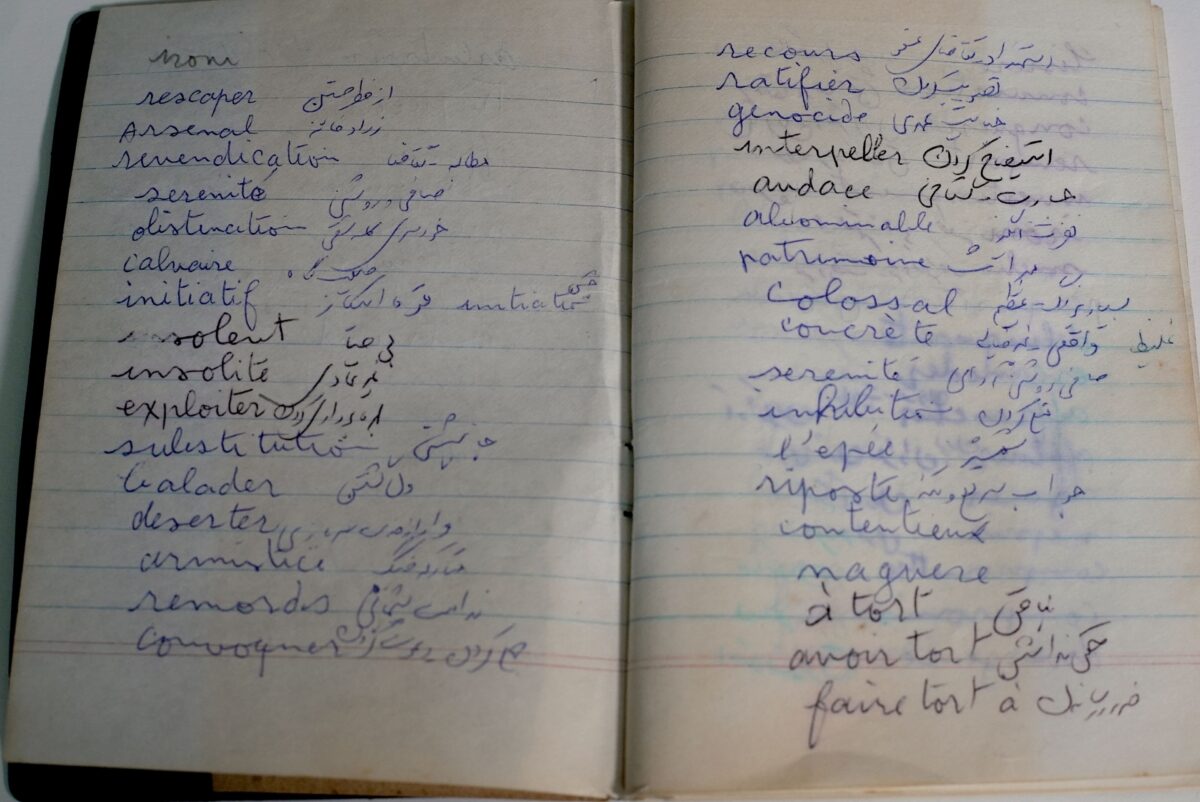 ironi
rescaper از خطر جستن
Arsenal زرادخانه
revendication مطالبه - تقاضا
serenité صافی و روشنی
distination
calvaire
initiatif initiation
insolent بی حیا
insolite غیر عادی
exploiter بهره برداری کردن
substitution جانشینی
balader ول گشتن
deserter
armistice متارکه جنگ
remords ندامت پشیمانی
convoquer جمع کردن دعوت کردن
recours استمداد تقاضای عفو
ratifier تصویب کردن
genocide
interpeller استیضاح کردن
audace جسارت - گستاخی
abominable نفرت انگیز
patrimoine میراث
colossal بسیار بزرگ عظیم
concrète واقعی غلیظ
serenité صافی روشنی آرامی
inhibition منع کردن
l'epée شمشیر
riposte جواب
contentieux
naguere
à tort بناحق
avoir tort حق نداشتن
faire tort à ضرر رساندن